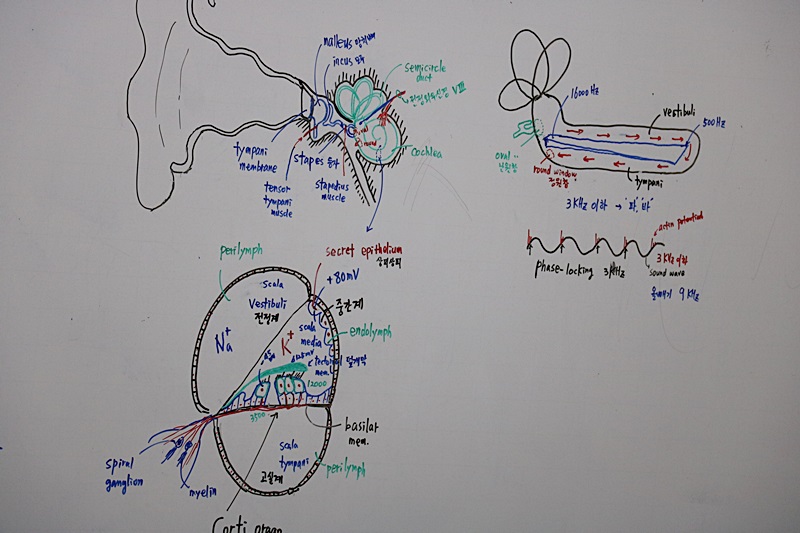 malleus 망치뼈
incus 모루
semicircle
duct
전정와우신경 VIII
cochlea
tympani
membrane
stapes 등자
tensor
tympani
muscle
stapedius
muscle
16000Hz
vestibuli
500Hz
oval
난원창
round window
정원창
tympani
3 KHz 이하 → "파, 바"
phase-locking 3KHz
3 KHz 이하
sound wave
올빼미 9 KHz
perilymph
secret epithelium
+80mV
scala
vestibuli
전정계
중간계
Na+
K+
scala
media
endolymph
mem.
12000
3500
basilar
mem.
scala
tympani
고실계
perilymph
spiral
ganglion
myelin
Corti organ